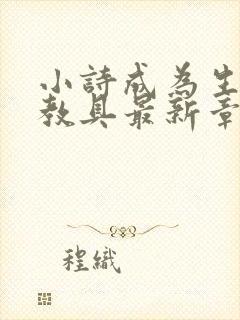 小詩成為生
教具最新章
程織